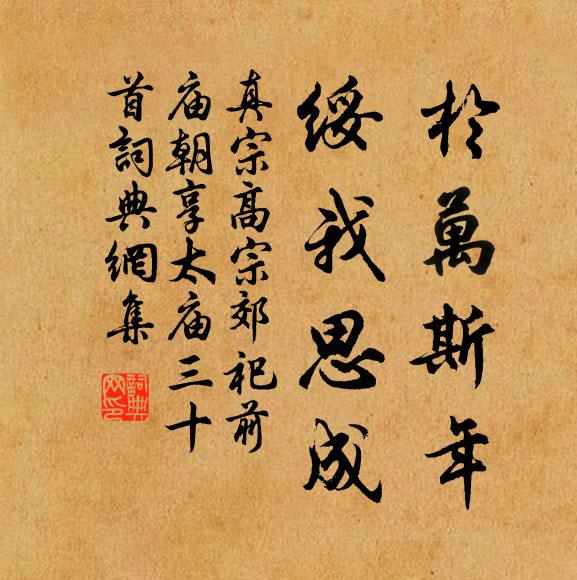 於萬斯年
綏我思成
真宗高宗郊祀前
庙朝享太庙三十
首詞典網集
詞典
网印